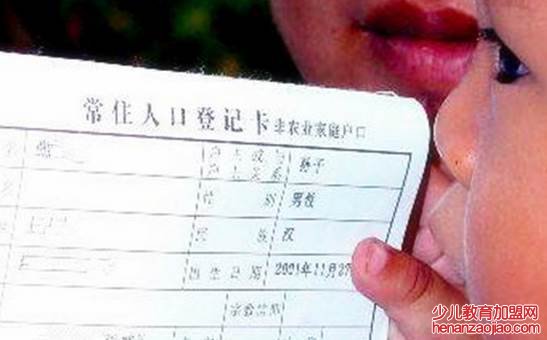 常住人口登记卡 非农业家庭户口
名 户主或与户主关系 孙子
性别 男性
民族 汉
出生日期 2001年11月27
宗教信仰
少儿教育加盟网
henanzaojiao.com